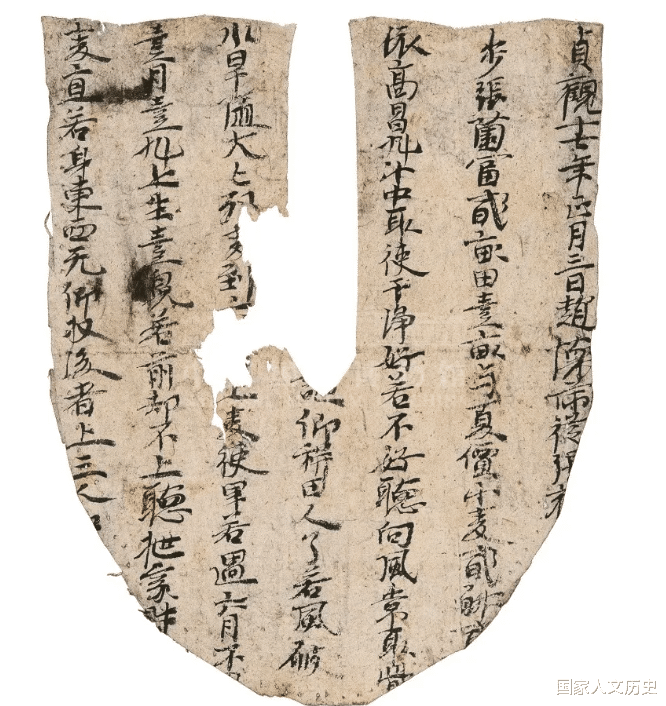 貞觀十七年正月三日趙懷滿從張
步張薗富貳畝田壹畝与夏價小麥貳斛
依高昌斛斗中取使干淨好若不好聽向風常取
仰耕田人了若風破
水旱隨大匕列麥到
麥使畢若過六月不
壹月壹斛上生壹兜若前却不上聽抴家財
麥直若身東西无仰收後者上三人